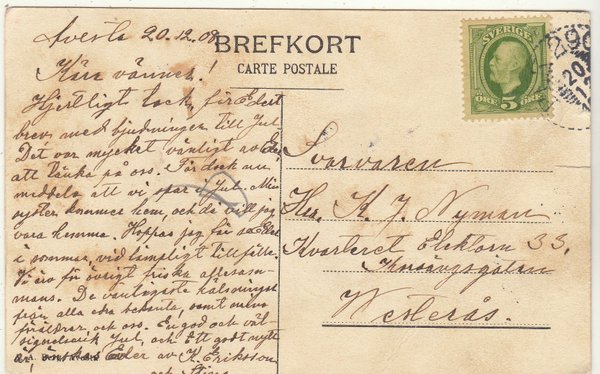 Avesta 20.12.08.
BREFKORT
CARTE POSTALE
Kära vänner!
Hjertligt tack för Edert
brev med bjudningen till Jul
Det var mycket vänligt av Eder
att tänka på oss. Får dock nu
meddela att vi Jul. Min
syster kommer hem, och då vill jag
vara hemma. Hoppas jag får se Eder
i sommar, vid lämpligt tillfälle.
Vi äro för övrigt friska allesam-
mans. De vänligaste hälsningar
från alla edra bekanta, samt mina
föräldrar och oss. En god och väl-
signelserik Jul, och Ett godt nytt
år, önskas Eder av K. Eriksson
och Stina
SVERIGE
ÖRE 5 ÖRE
290
20
12
Svarvaren
Herr K. J. Nyman
Kvarteret Ekklorn 33.
Westerås.